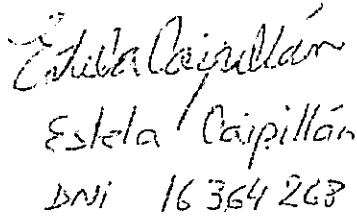 Estela Caipillán
Estela Caipillán
DNI 16364268